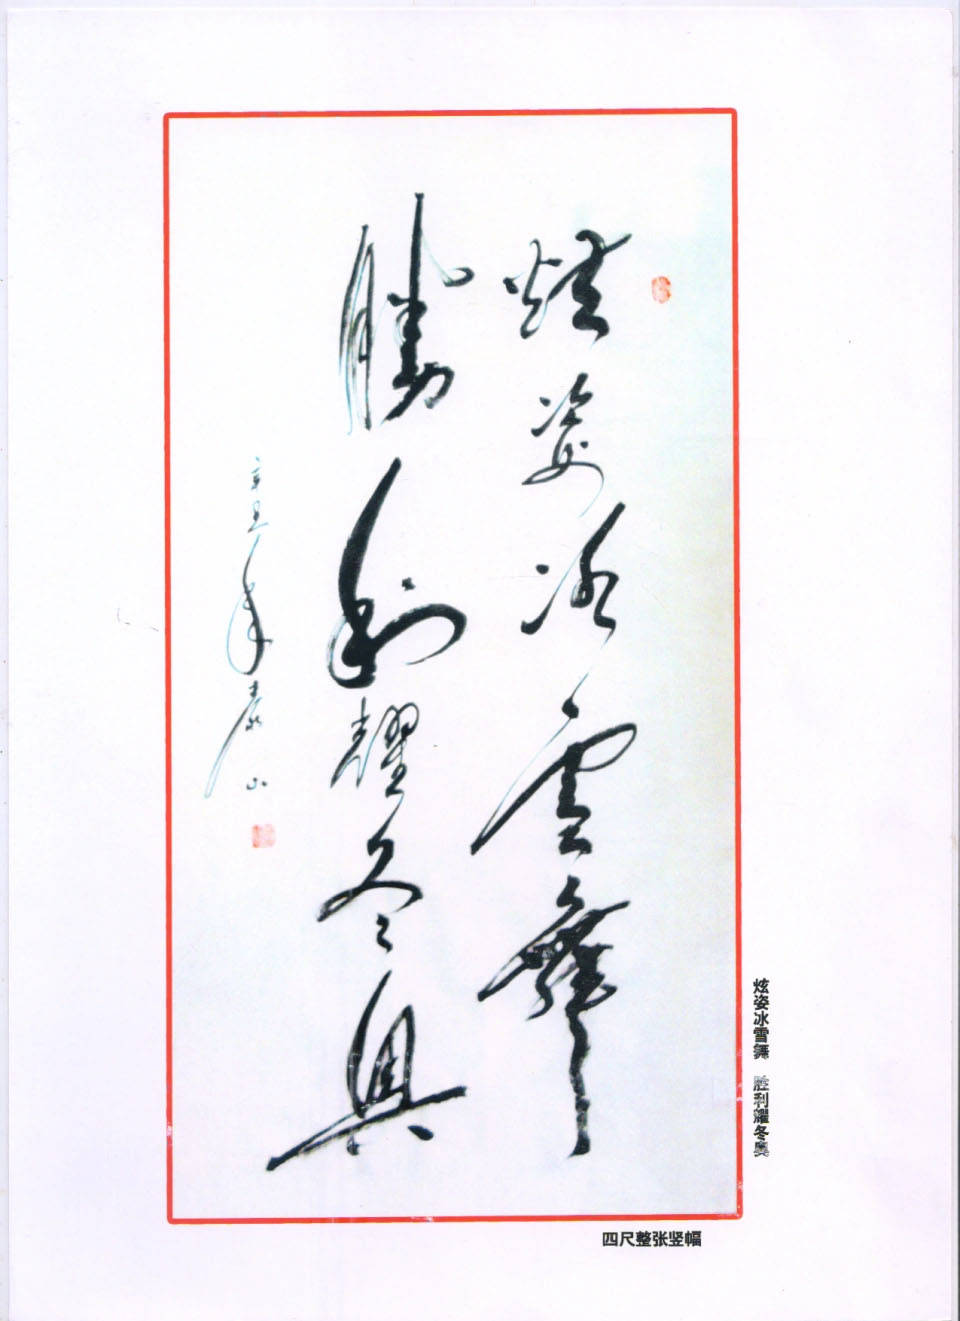 炫姿冰雪舞
勝利耀冬奥
辛丑年泰山
炫姿冰雪舞 胜利耀冬奥
四尺整张竖幅